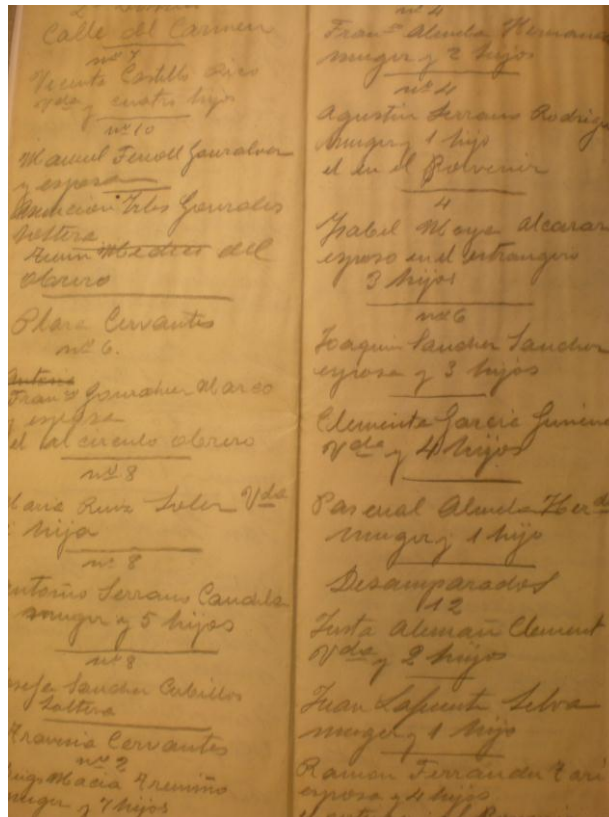 Calle del Carmen
nº 7
Vicenta Castillo Rizo
Vda y cuatro hijos
nº 10
Manuel Ferroll Gonzalvez
y esposa
Asuncion Irles Gonzales
Soltera
del
obrero
Plaza Cervantes
nº 6.
Antonio
Franco Gonzalvez Marco
y esposa
el al circulo obrero
nº 8
Maria Ruiz Soler Vda
hija
nº 8
Antonio Serrano Candela
muger y 5 hijos
nº 8
Josefa Sanchez Cubillos
Soltera
Travesia Cervantes
nº 2
Macia Treviño
muger y 7 hijos
nº 4
Franco Almela
muger y 2 hijos
nº 4
Agustin Serrano
muger y 1 hijo
el en el Porvenir
4
Ysabel Moya Alcaraz
esposo en el estrangero
3 hijos
nº 6
Joaquin Sanchez Sanchez
esposa y 3 hijos
Clemente Garcia
Vda y 4 hijos
Pascual Almela
muger y 1 hijo
Desamparados
12
Justa Alemañ Clement
Vda y 2 hijos
Juan Lafuente Selva
muger y 1 hijo
Ramon Ferrandez
esposa y 4 hijos